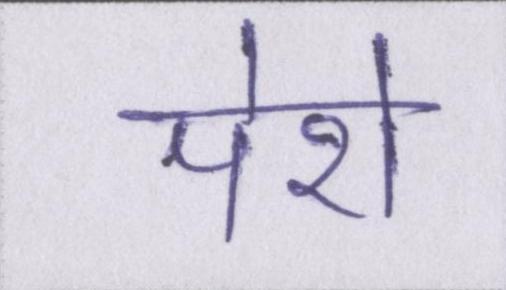 पेशे